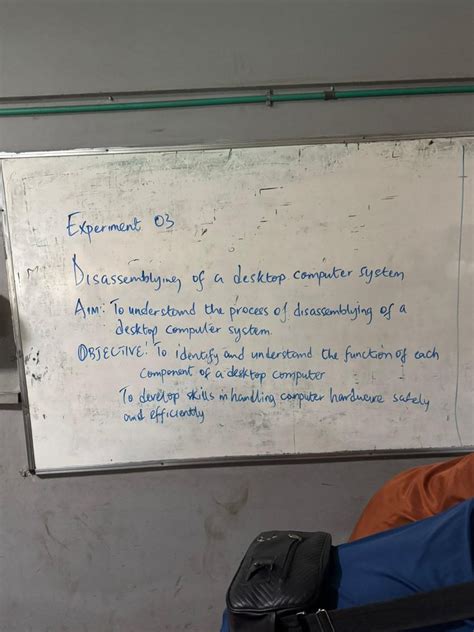 Experiment 03
Disassemblying of a desktop computer system
AIM: To understand the process of disassemblying of a
desktop computer system.
OBJECTIVE: To identify and understand the function of each
component of a desktop computer
To develop skills in handling computer hardware safely
and efficiently